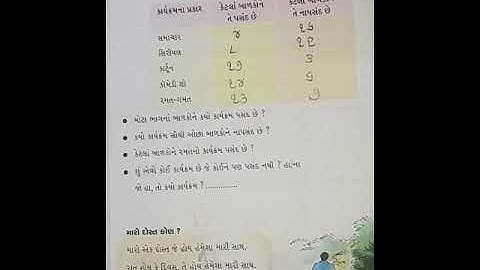 કાર્યક્રમના પ્રકાર કેટલાં બાળકોને તે પસંદ છે કેટલાં બાળકોને તે નાપસંદ છે
સમાચાર ૪
સિરીયલ ૮ ૧૨
કાર્ટૂન ૧૭ ૩
કૉમેડી શૉ ૧૪ ૬
રમત-ગમત ૧૩ ૭
• મોટા ભાગનાં બાળકોને કયો કાર્યક્રમ પસંદ છે ?
• કયો કાર્યક્રમ સૌથી ઓછાં બાળકોને નાપસંદ છે ?
• કેટલાં બાળકોને રમતનો કાર્યક્રમ પસંદ છે ?
• શું એવો કોઈ કાર્યક્રમ છે જે કોઈને પણ પસંદ નથી ? હા/ના
જો હા, તો કયો કાર્યક્રમ ? ..............
મારો દોસ્ત કોણ ?
મારો એક દોસ્ત જે હોય હંમેશા મારી સાથ,
રાત હોય કે દિવસ, તે હોય હંમેશા મારી સાથ.